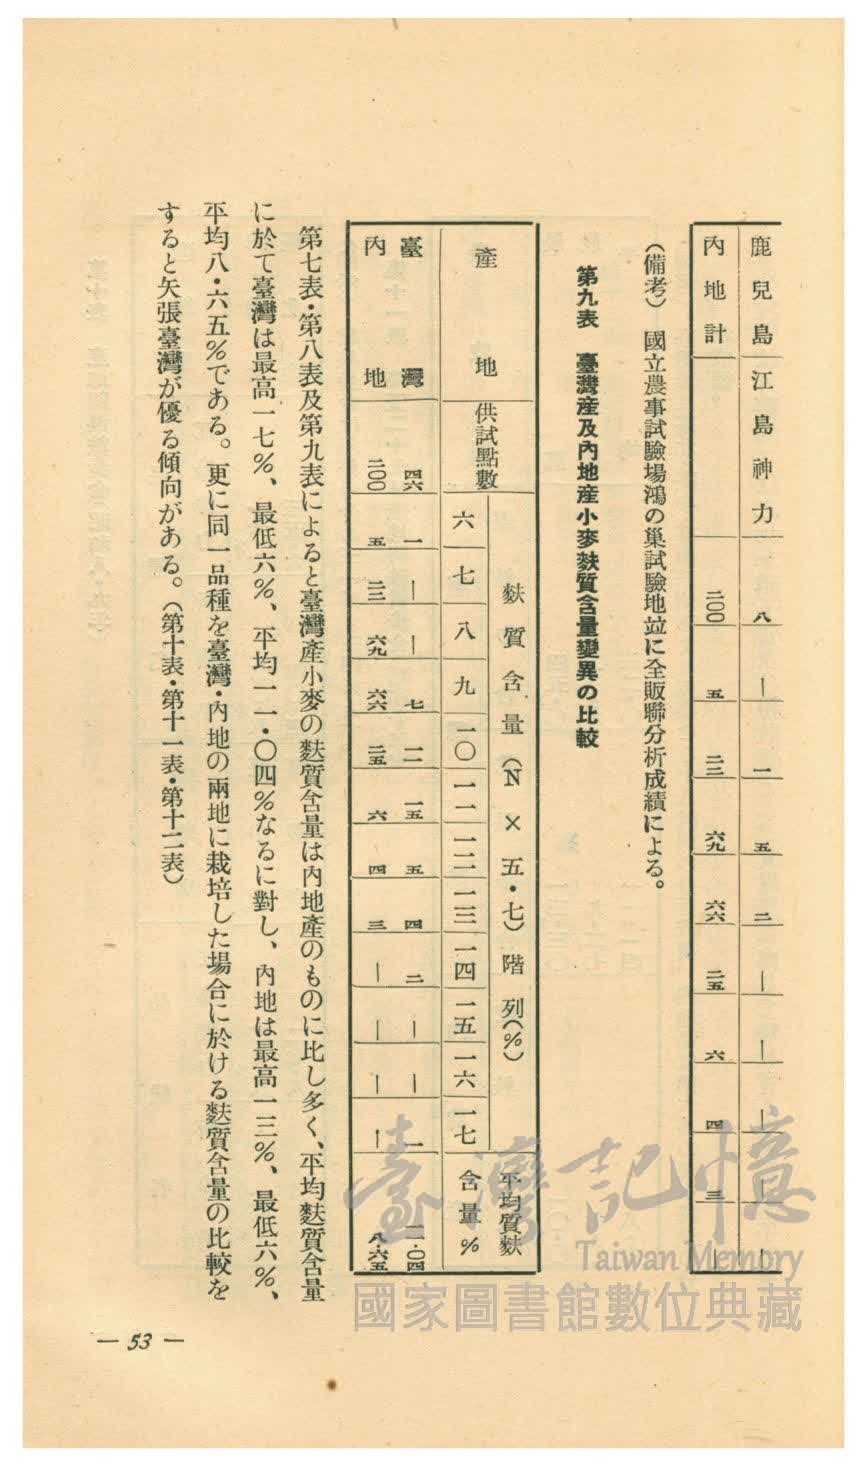 鹿兒島 江島神力 八 ｜ 一 五 二 ｜ ｜ ｜ ｜ ｜
內地計 二〇〇 五 二三 六九 六六 二五 六 四 三 ｜
（備考） 國立農事試驗場鴻の巢試驗地竝に全販聯分析成績による。
第九表 臺灣産及內地産小麥麩質含量變異の比較
產地 供試點數 麩質含量（N×五・七）階列（％） 平均質麩含量％
六 七 八 九 一〇 一一 一二 一三 一四 一五 一六 一七
臺灣 四六 一 ｜ ｜ 七 一一 一五 五 四 二 ｜ ｜ 一 一一・〇四
內地 二〇〇 五 二三 六九 六六 二五 六 四 三 ｜ ｜ ｜ ｜ 八・六五
第七表・第八表及第九表によると臺灣產小麥の麩質含量は內地產のものに比し多く、平均麩質含量
に於て臺灣は最高一七％、最低六％、平均一一・〇四％なるに對し、內地は最高一三％、最低六％、
平均八・六五％である。更に同一品種を臺灣・內地の兩地に栽培した場合に於ける麩質含量の比較を
すると矢張臺灣が優る傾向がある。（第十表・第十一表・第十二表）
— 53 —
臺灣記憶
Taiwan Memory
國家圖書館數位典藏